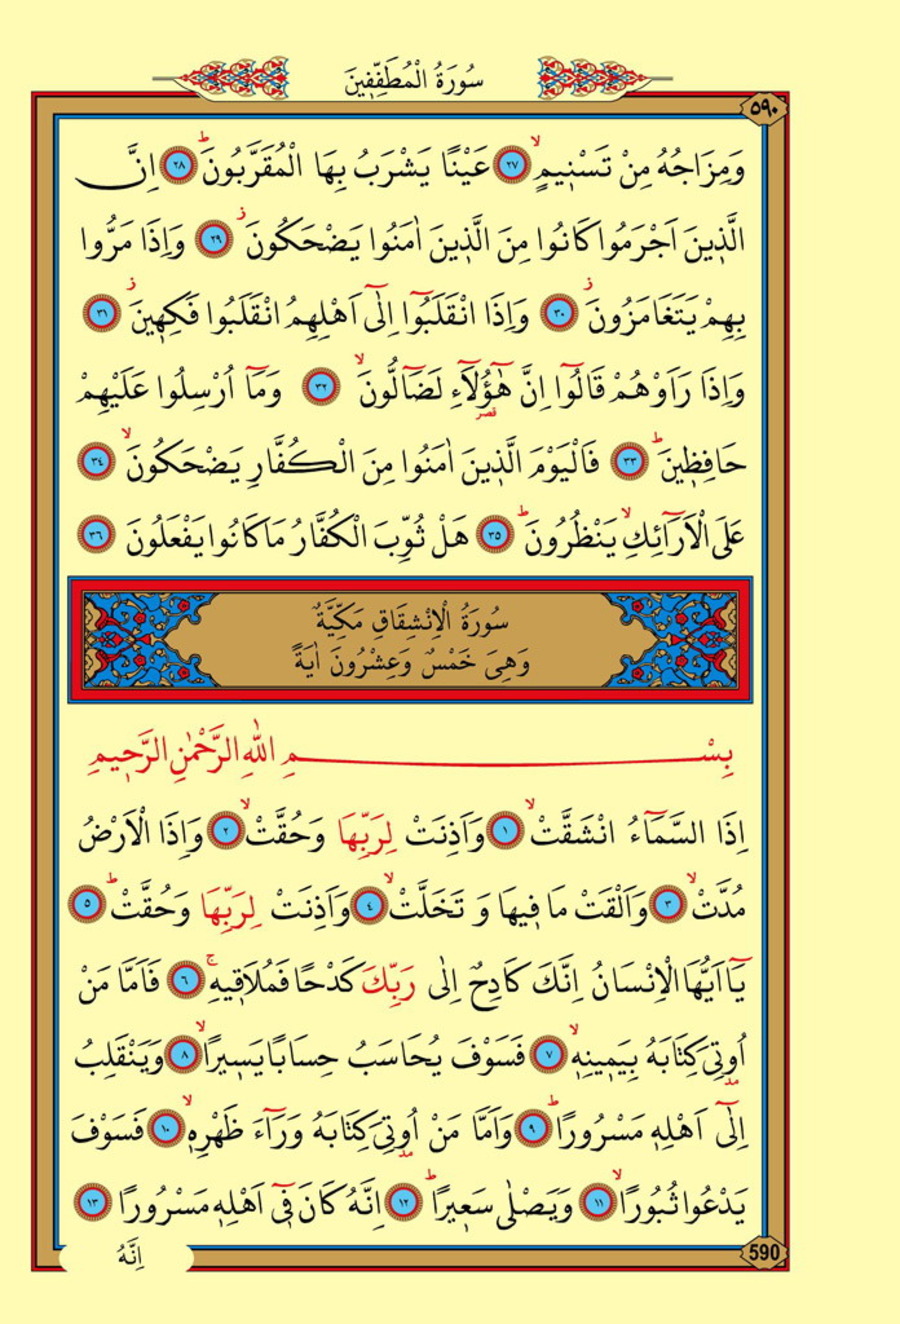 سُورَةُ الْمُطَفِّفِينَ
٥٩٠
وَمِزَاجُهُ مِنْ تَسْنِيمٍۙ ﴿٢٧﴾ عَيْنًا يَشْرَبُ بِهَا الْمُقَرَّبُونَۜ ﴿٢٨﴾ اِنَّ
الَّذِينَ اَجْرَمُوا كَانُوا مِنَ الَّذِينَ اٰمَنُوا يَضْحَكُونَۘ ﴿٢٩﴾ وَاِذَا مَرُّوا
بِهِمْ يَتَغَامَزُونَۘ ﴿٣٠﴾ وَاِذَا انْقَلَبُٓوا اِلٰٓى اَهْلِهِمُ انْقَلَبُوا فَكِهِينَۘ ﴿٣١﴾
وَاِذَا رَاَوْهُمْ قَالُٓوا اِنَّ هٰٓؤُ۬لَٓاءِ لَضَٓالُّونَۙ ﴿٣٢﴾ وَمَٓا اُرْسِلُوا عَلَيْهِمْ
حَافِظِينَۜ ﴿٣٣﴾ فَالْيَوْمَ الَّذِينَ اٰمَنُوا مِنَ الْكُفَّارِ يَضْحَكُونَۙ ﴿٣٤﴾
عَلَى الْاَرَٓائِكِۙ يَنْظُرُونَۜ ﴿٣٥﴾ هَلْ ثُوِّبَ الْكُفَّارُ مَا كَانُوا يَفْعَلُونَ ﴿٣٦﴾
سُورَةُ الْاِنْشِقَاقِ مَكِّيَّةٌ
وَهِىَ خَمْسٌ وَعِشْرُونَ اٰيَةً
بِسْمِ اللّٰهِ الرَّحْمٰنِ الرَّحِيمِ
اِذَا السَّمَٓاءُ انْشَقَّتْۙ ﴿١﴾ وَاَذِنَتْ لِرَبِّهَا وَحُقَّتْۙ ﴿٢﴾ وَاِذَا الْاَرْضُ
مُدَّتْۙ ﴿٣﴾ وَاَلْقَتْ مَا فِيهَا وَ تَخَلَّتْۙ ﴿٤﴾ وَاَذِنَتْ لِرَبِّهَا وَحُقَّتْۜ ﴿٥﴾
يَٓا اَيُّهَا الْاِنْسَانُ اِنَّكَ كَادِحٌ اِلٰى رَبِّكَ كَدْحًا فَمُلَاقِيهِۚ ﴿٦﴾ فَاَمَّا مَنْ
اُو۫تِىَ كِتَابَهُ بِيَمِينِهِۙ ﴿٧﴾ فَسَوْفَ يُحَاسَبُ حِسَابًا يَسِيرًاۙ ﴿٨﴾ وَيَنْقَلِبُ
اِلٰٓى اَهْلِهِ مَسْرُورًاۜ ﴿٩﴾ وَاَمَّا مَنْ اُو۫تِىَ كِتَابَهُ وَرَٓاءَ ظَهْرِهِۙ ﴿١٠﴾ فَسَوْفَ
يَدْعُوا ثُبُورًاۙ ﴿١١﴾ وَيَصْلٰى سَعِيرًاۜ ﴿١٢﴾ اِنَّهُ كَانَ فِٓى اَهْلِهِ مَسْرُورًا ﴿١٣﴾
اِنَّهُ
590